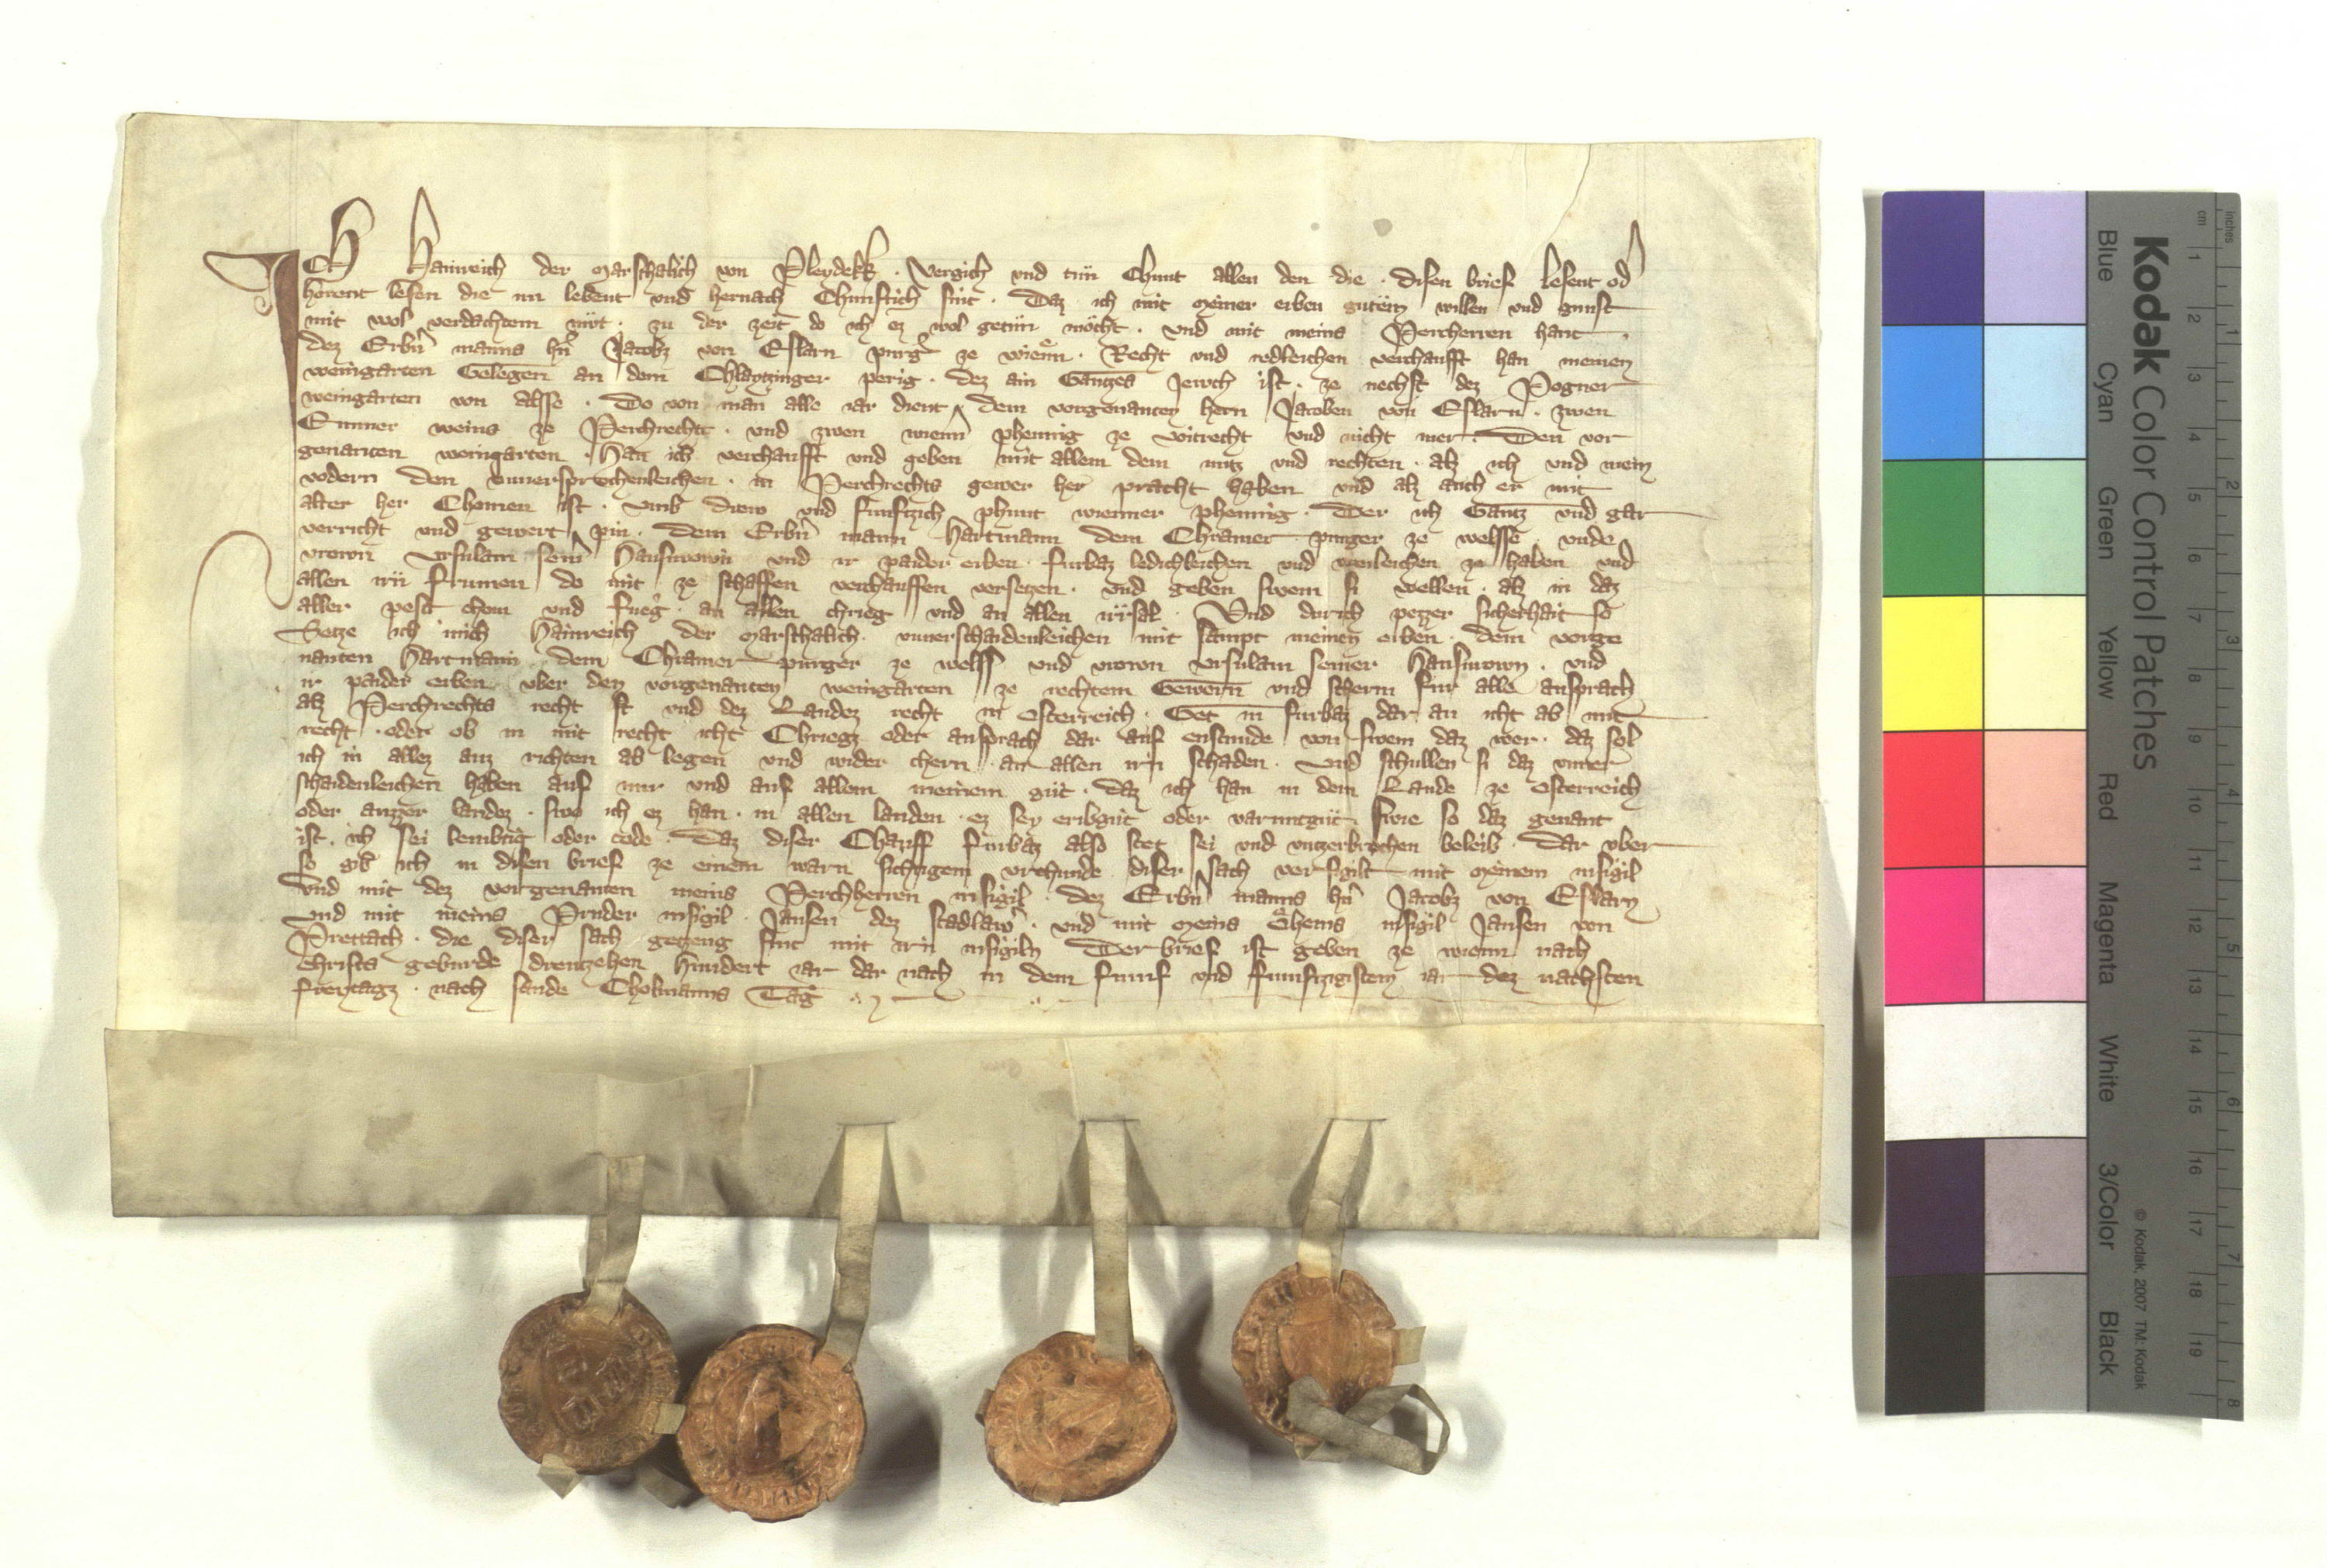 Ich Hainreich der Marschalich von Pleydekk . Vergich vnd tuen Chunt allen den die . disen brief lesent od
hoerent lesen die nu lebent vnd hernach Chunftich sint . Daz ich mit meiner erben gutem willen vnd gunst
mit wol verdachtem muet . zu der zeit do ich ez wol getuen mocht . vnd mit meins Percherren hant .
dez Erbn manns hn Jacobz von Eslarn purg ze wienn . Recht vnd redleichen verchaufft han meinen
weingarten Gelegen an dem Chlaytzinger perig . dez ain Gantzes Jewch ist . ze nechst dez Pogner
weingarten von Alsse . Do von man alle iar dient dem vorgenanten hern Jacoben von Eslarn . zwen
Emmer weins ze Perchrecht . vnd zwen wienn phennig ze voitrecht vnd nicht mer . Den vor
genanten weingarten . Han ich verchaufft vnd geben mit allem dem nutz vnd rechten . alz ich vnd mein
vodern den vnuersprochenleichen . in Perchrechts gewer her pracht haben vnd alz auch er mit
alter her Chomen ist . vmb drew vnd fumftzich phunt wienner phennig . Der ich Gantz vnd gar
verricht vnd gewert pin . dem Erbn mann Hartmann dem Chramer purger ze welsse . vnde
vrown vrsulam sein hausvrown vnd ir paider erben . furbaz ledichleichen vnd vreileichen ze haben vnd
allen irn frumen do mit ze schaffen verchauffen versetzen . vnd geben swem si wellen . alz in daz
aller pest chom vnd fueg . an allen chrieg vnd an allen irrsal . Vnd durich pezzer sicherhait so
Setze ich mich Hainreich der Marschalich . vnuerschaidenleichen mit sampt meinen erben . dem vorge
nanten Hartmann dem Chramer purger ze welss vnd vrown vrsulam seiner Hausvrown . vnd
ir paider erben vber den vorgenanten weingarten ze rechtem Gewern vnd scherm fur alle ansprach
alz Perchrechts recht ist vnd dez Landez recht in Osterreich . Get in furbaz dar an icht ab mit
recht . oder ob in mit recht icht Chriegz oder ansprach dar auf enstunde von swem daz wer . daz sol
ich in allez auz richten ab legen vnd wider chern an allen irn schaden . Vnd schullen si daz vnuer
schaidenleichen haben auf mir vnd auf allem meinem guet . daz ich han in dem Lande ze Osterreich
oder auzzer landez . swo ich ez han . in allen landen . ez sey eribguet oder varuntguet . swie so daz genant
ist . ich sei lembtig oder tode . Daz diser Chauff furbaz also stet sei vnd vnzerbrochen beleib . Dar vber
so gib ich in disen brief ze einem warn sichtigem vrchunde diser sach versigilt mit meinem insigil
vnd mit dez vorgenanten meins Perchherren insigil . dez Erbn manns hn Jacobz von Eslarn
vnd mit meins Pruder insigil . Jansen dez stadlaw . vnd mit meins Ohems insigil Jansen von
Prettach . die diser sach getzeug sint mit irn insigiln Der brief ist geben ze wienn nach
Christs geburde dreutzehen Hundert iar dar nach in dem fumf vnd fumftzigistem iar dez nachsten
freytagz . nach sande Cholmanns Tag
Kodak Color Control Patches
Blue Cyan Green Yellow Red Magenta White 3/Color Black
© Kodak, 2007 TM: Kodak
cm 1 2 3 4 5 6 7 8 9 10 11 12 13 14 15 16 17 18 19
inches 1 2 3 4 5 6 7 8